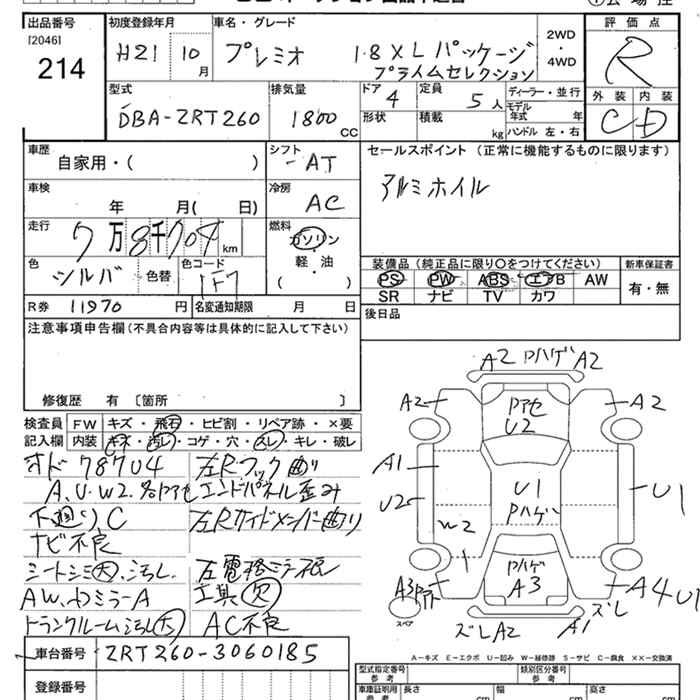 出品番号 初度登録年月 車名・グレード 評価点
[2046]
214
H21 10月 プレミオ 1.8 X L パッケージ
プライムセレクション
2WD・4WD
R
型式 排気量 ドア 定員 ディーラー・並行 外装 内装
DBA-ZRT260 1800 CC 4 5人
モデル年式 年
形状 積載 kg ハンドル 左・右
C D
車歴 シフト セールスポイント (正常に機能するものに限ります)
自家用・( ) AT
アルミホイル
車検 冷房
年 月( 日) AC
走行 燃料
7万8千704km ガソリン
軽・油
( )
色 色替 色コード
シルバ 1F7
装備品 (純正品に限り○をつけてください) 新車保証書
PS PW ABS エアB AW 有・無
SR ナビ TV カワ
R券 11970円 名変通知期限 月 日
後日品
注意事項申告欄(不具合内容等は具体的に記入して下さい)
修復歴 有 [箇所
検査員 FW キズ・飛石・ヒビ割・リペア跡・×要
記入欄 内装 キズ・汚レ・コゲ・穴・スレ・キレ・破レ
オド 78704 左Rフック曲り
A、U、W2、各Pアセ エンドパネル歪み
下廻りC 左Rサイドメンバー曲り
ナビ不良
シートシミ大、汚れ 左電格ミラー不良
AW、ドアミラーA 工具欠
トランクルーム汚れ大 AC不良
車台番号 ZRT260-3060185
登録番号
A2 Pハゲ A2
A2 Pアセ U2 A2
A1
U2 U1 Pハゲ U1
W2
Pハゲ A3
A3 A4 U1
スペア ズレ
ズレA2 A1
A-キズ E-エクボ U-凹み W-補修跡 S-サビ C-腐食 ××-交換済
型式指定番号 参考 類別区分番号 参考
車庫証明用 参考 長さ cm 幅 cm 高さ cm